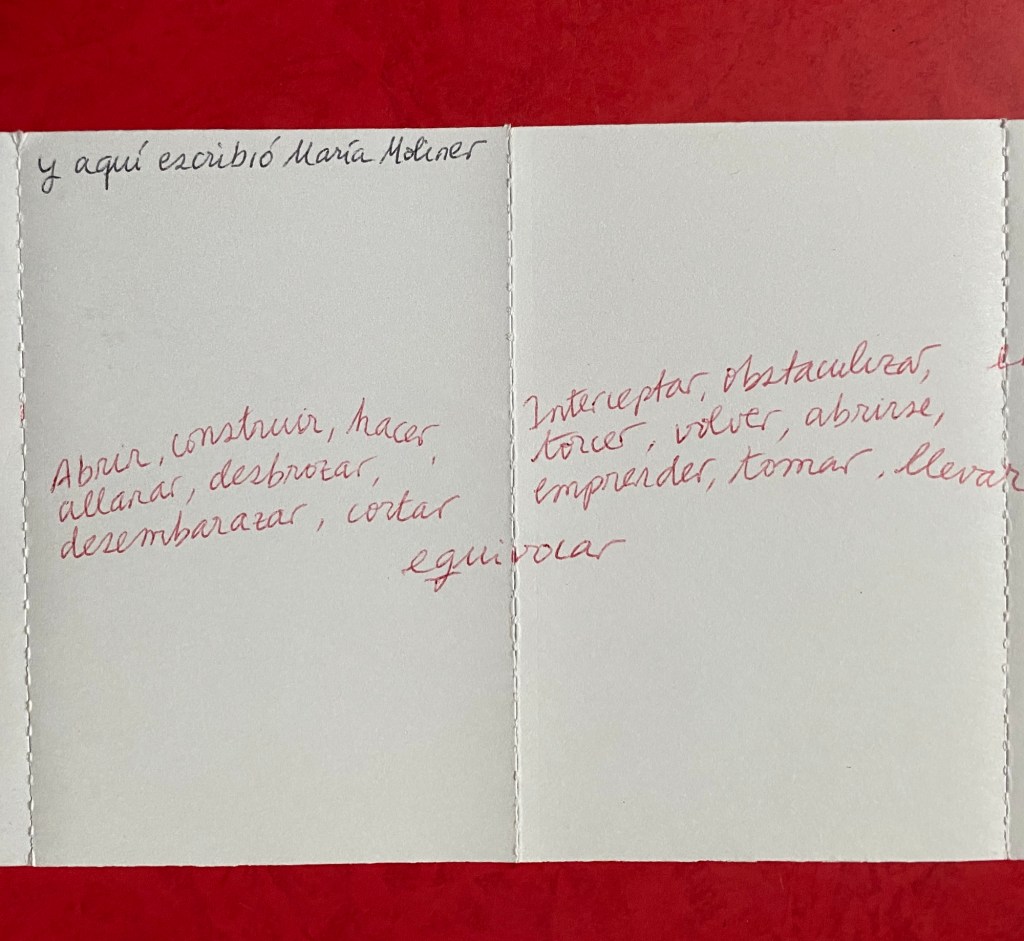 y aquí escribió María Moliner
Abrir, construir, hacer,
allanar, desbrozar,
desembarazar, cortar
equivocar
Interceptar, obstaculizar,
torcer, volver, abrirse,
emprender, tomar, llevar